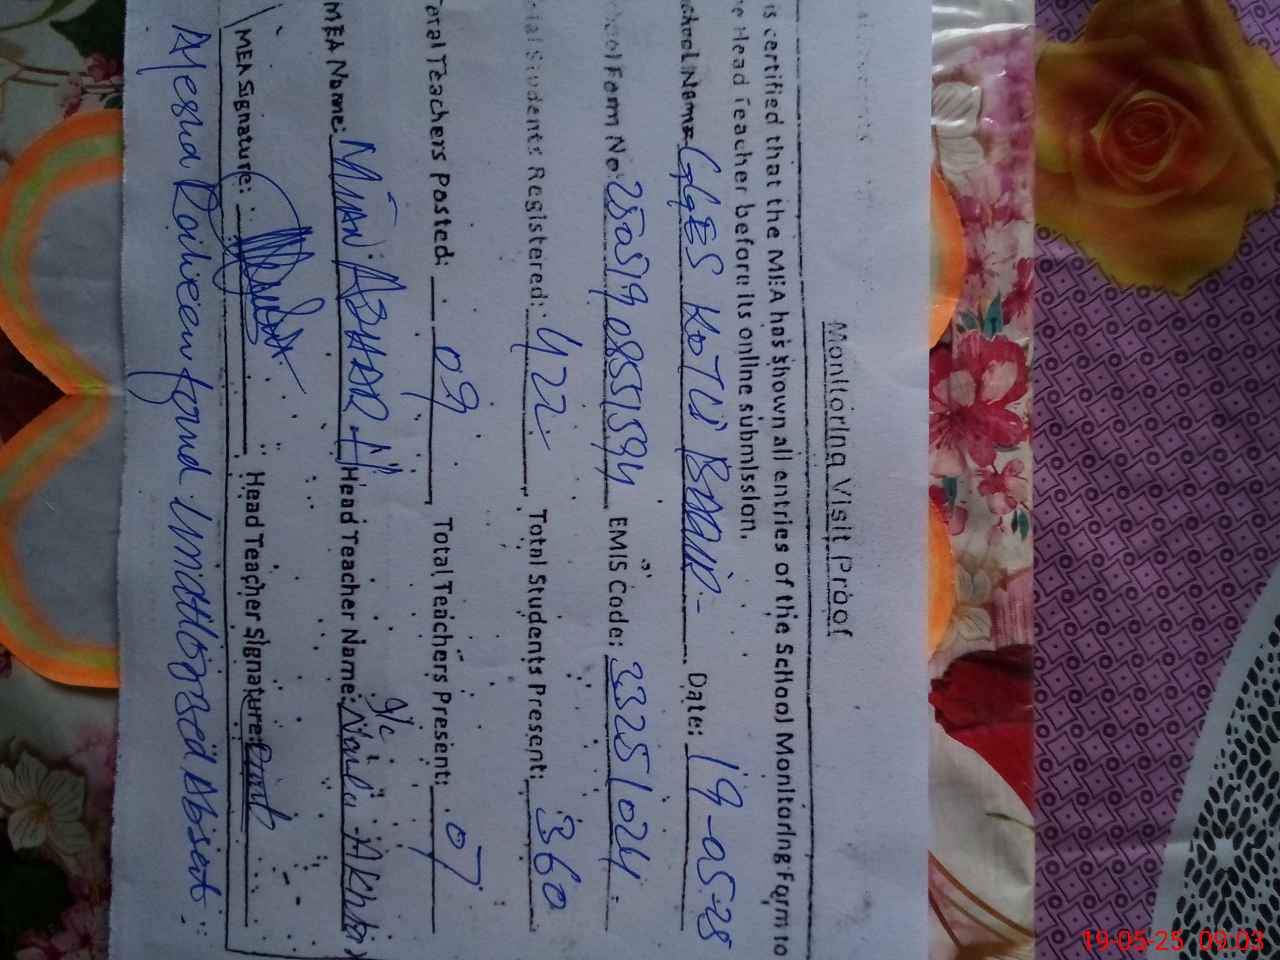 Monitoring Visit Proof
is certified that the MEA has shown all entries of the School Monitoring Form to
e Head Teacher before its online submission.
chool Name: GGES KOTLI Date: 19-05-25
hool Form No: EMIS Code: 33251024
tal Students Registered: 422 Total Students Present: 360
otal Teachers Posted: 09 Total Teachers Present: 07
MEA Name: MIAN AZHAR H Head Teacher Name: I/c Naila Akhtar
MEA Signature: Head Teacher Signature:
found Unauthorised Absent
19-05-25 09:03